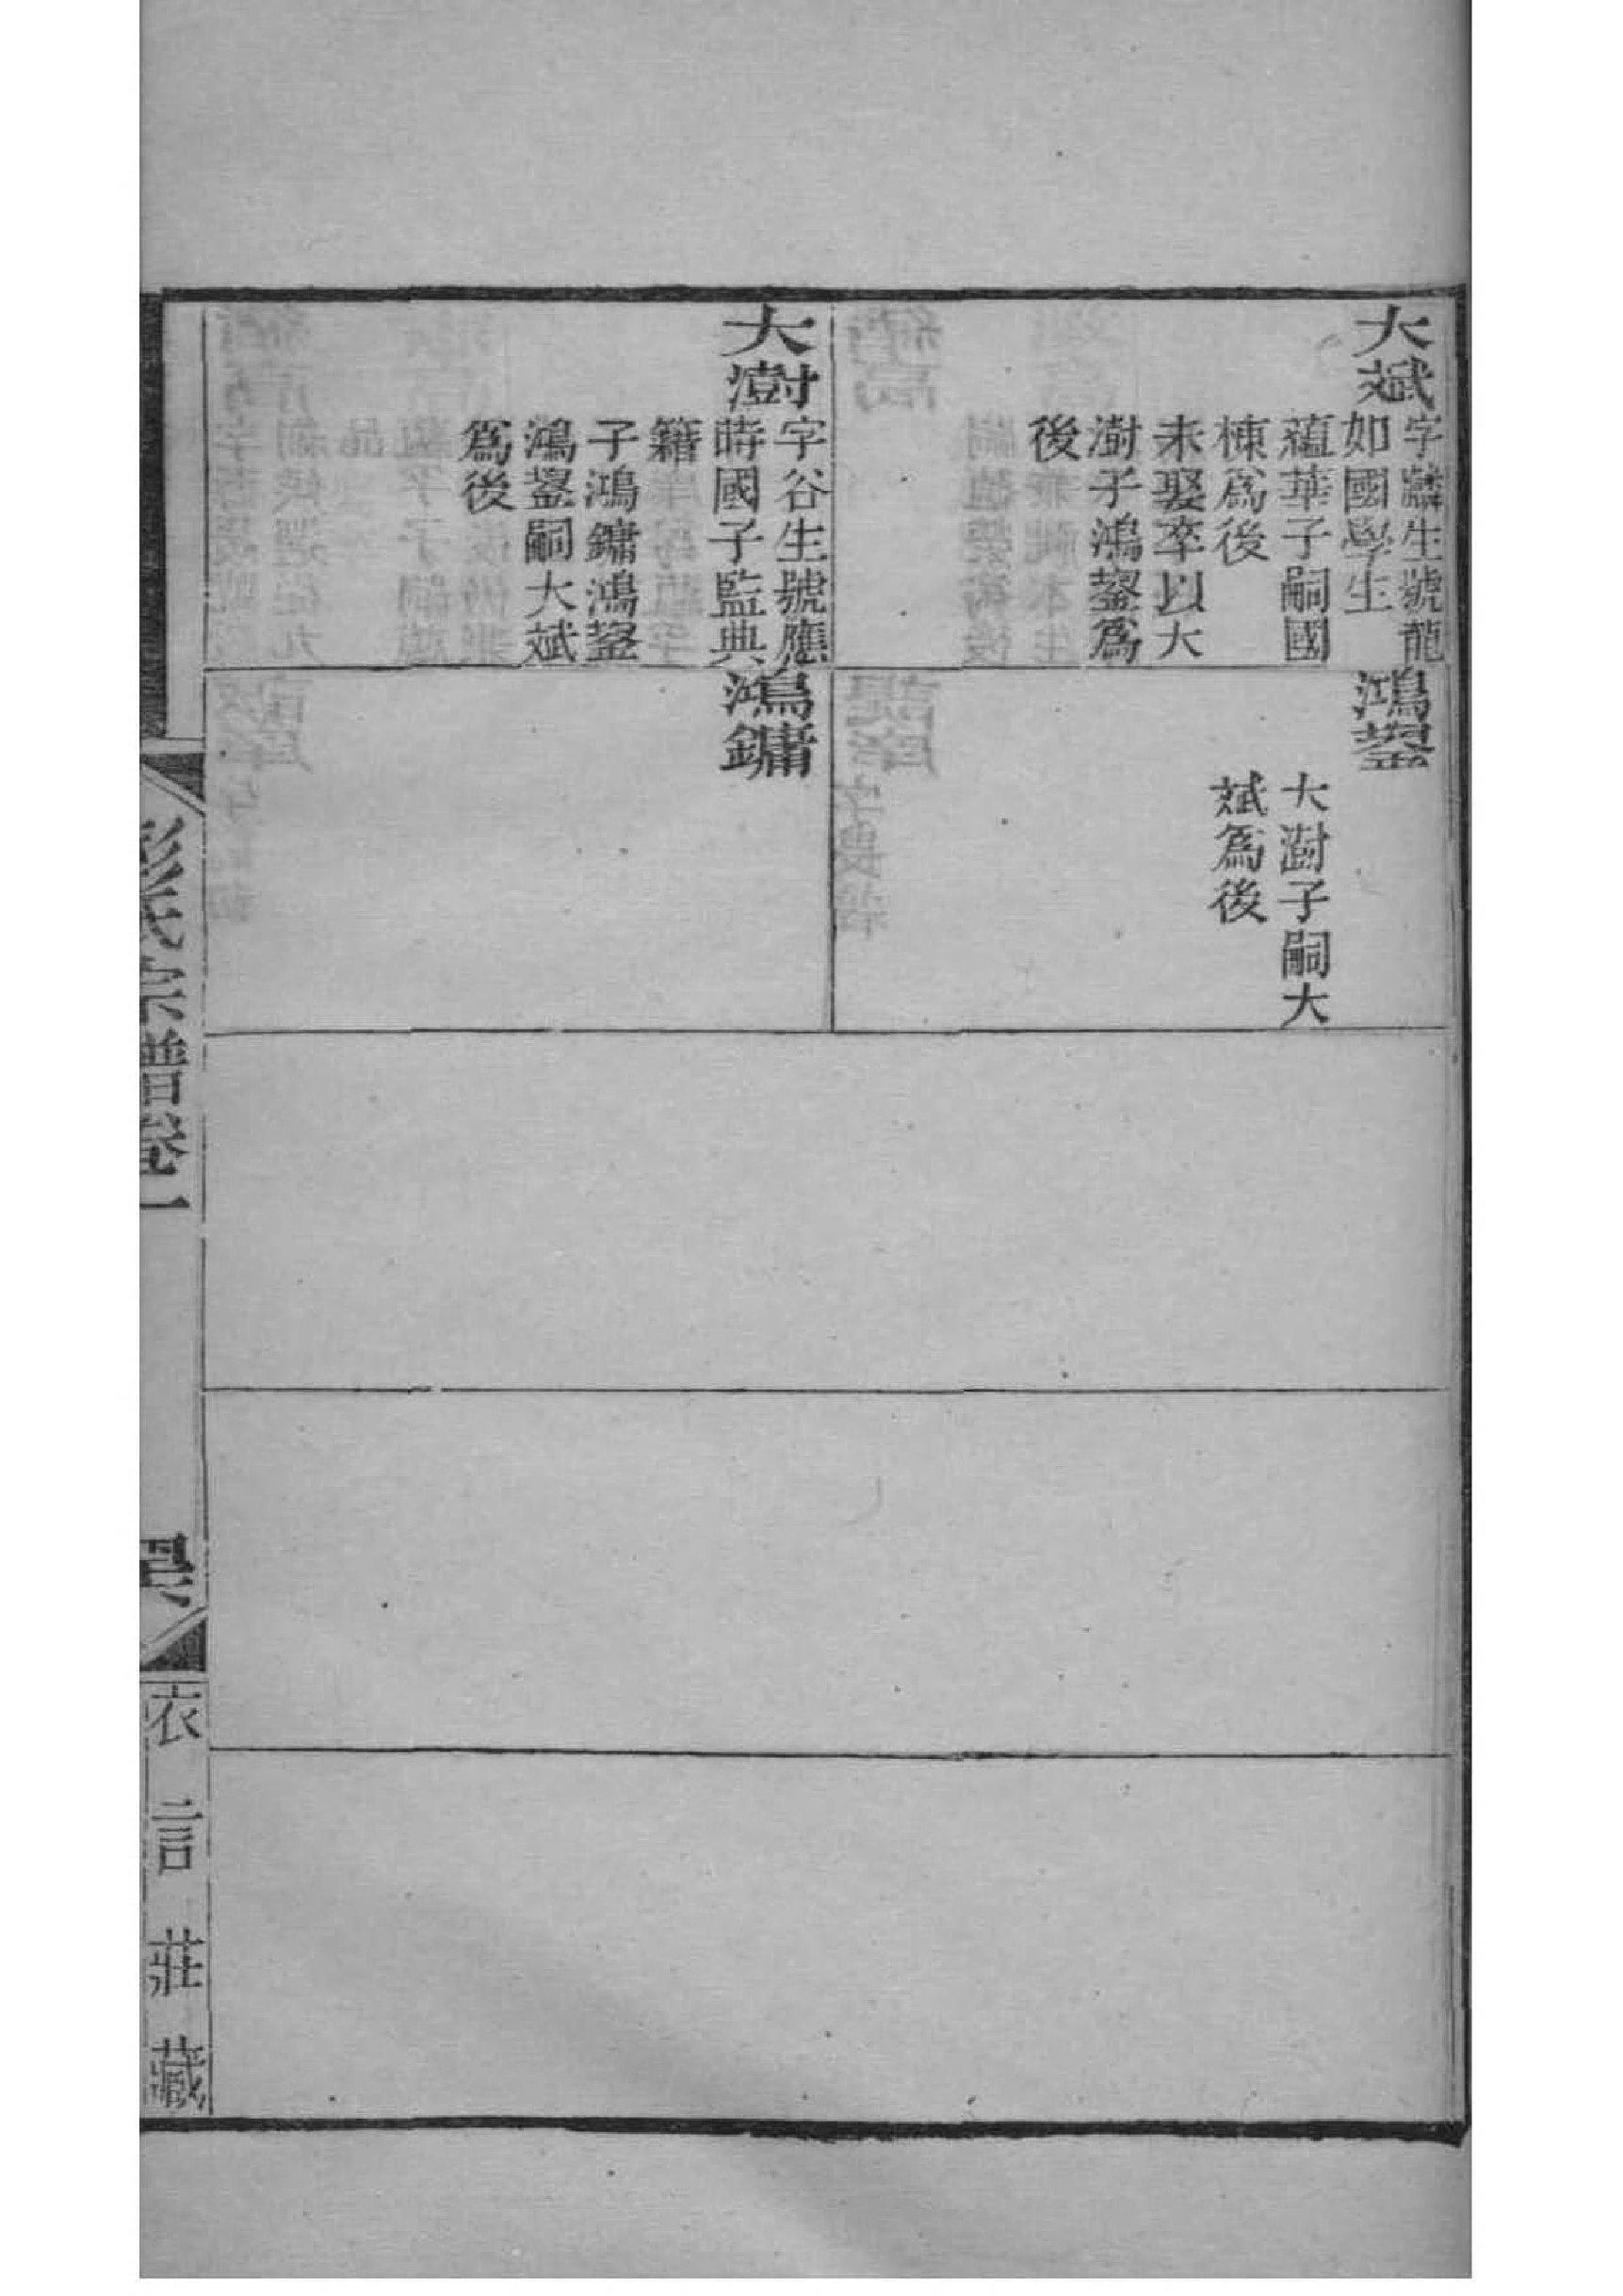 大斌
字麟生號龍
如國學生
蘊華子嗣國
棟爲後
未娶卒以大
澍子鴻鋆爲
後
鴻鋆
大澍子嗣大
斌爲後
大澍
字谷生號應
時國子監典
籍
子鴻鏞鴻鋆
鴻鋆嗣大斌
爲後
鴻鏞
彭氏宗譜卷一
衣言莊藏